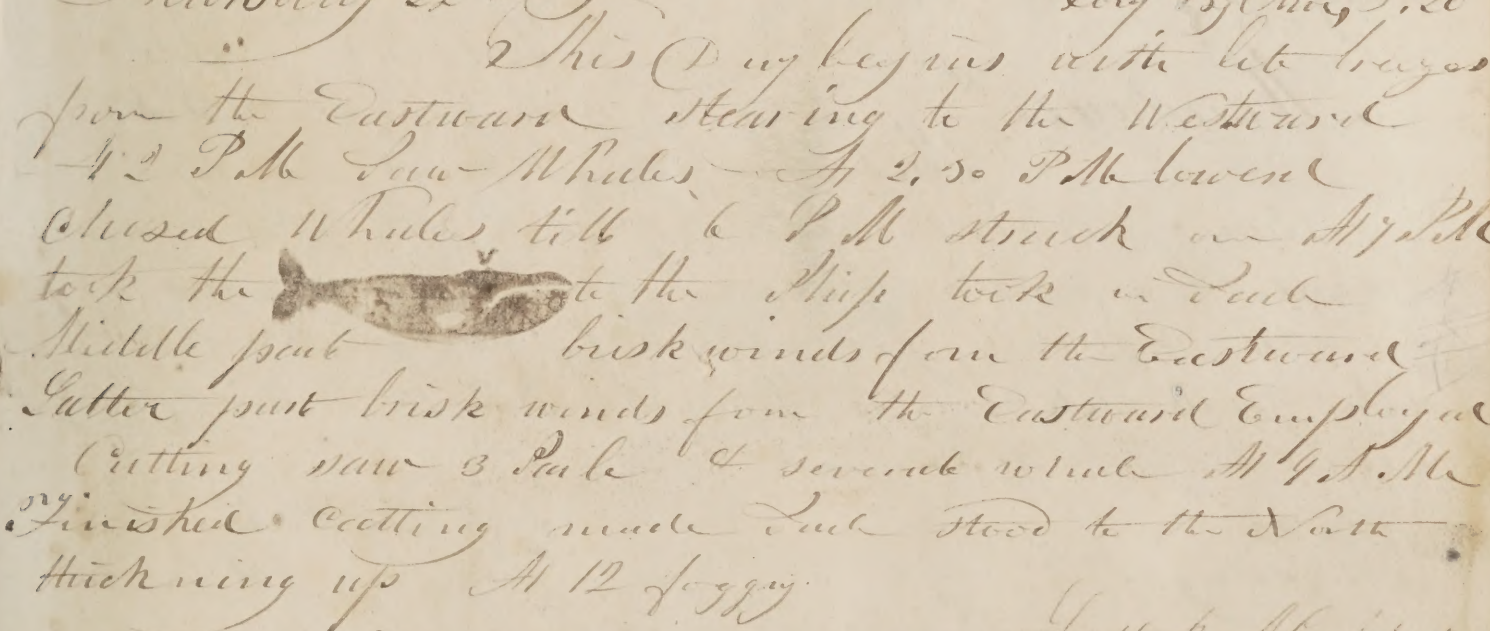 This Day begins with lite brezes
from the Eastward stearing to the Westward
At 2 PM Saw Whales At 2.30 PM lowerd
Chased Whales till 6 PM struck one At 7 PM
took the to the Ship took in Sail
Middle part brisk winds from the Eastward
Latter part brisk winds fom the Eastward Employed
Cutting saw 3 Sail & severale whale At 9 A M
Finished Cutting made Sail stood to the North
thickning up At 12 foggy